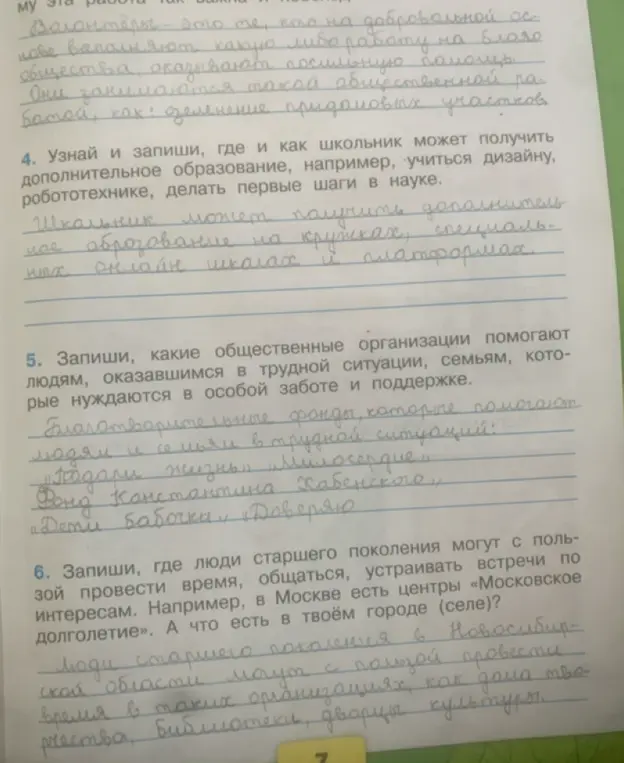 му эта работа так важна и
Волонтёры – это те, кто на добровольной ос-
нове выполняют какую либо работу на благо
общества, оказывают посильную помощь.
Они занимаются такой общественной ра-
ботой, как: озеленение придомовых участков
4. Узнай и запиши, где и как школьник может получить
дополнительное образование, например, учиться дизайну,
робототехнике, делать первые шаги в науке.
Школьник может получить дополнитель-
ное оброзование на кружках, специаль-
ных онлайн школах и платформах.
5. Запиши, какие общественные организации помогают
людям, оказавшимся в трудной ситуации, семьям, кото-
рые нуждаются в особой заботе и поддержке.
Благотворительные фонды, которые помогают
людям и семьям в трудной ситуаций:
„Подари жизнь„ „Милосердие„
Фонд Константина Хабенского„
„Дети бабочки„ „Доверяю
6. Запиши, где люди старшего поколения могут с поль-
зой провести время, общаться, устраивать встречи по
интересам. Например, в Москве есть центры «Московское
долголетие». А что есть в твоём городе (селе)?
Люди старшего поколения в Новосибир-
ской области могут с пользой провести
время в таких организациях, как дома тво-
рчества, библиотеки, дворцы культуры.
7